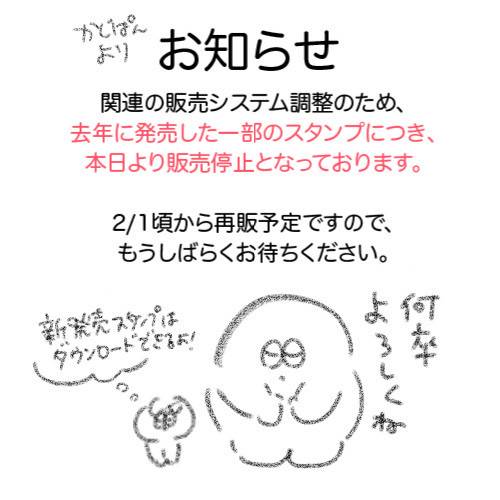 かどぱん
より
お知らせ
関連の販売システム調整のため、
去年に発売した一部のスタンプにつき、
本日より販売停止となっております。
2/1頃から再販予定ですので、
もうしばらくお待ちください。
新発売スタンプは
ダウンロードできるよ!
何卒
よろしくね